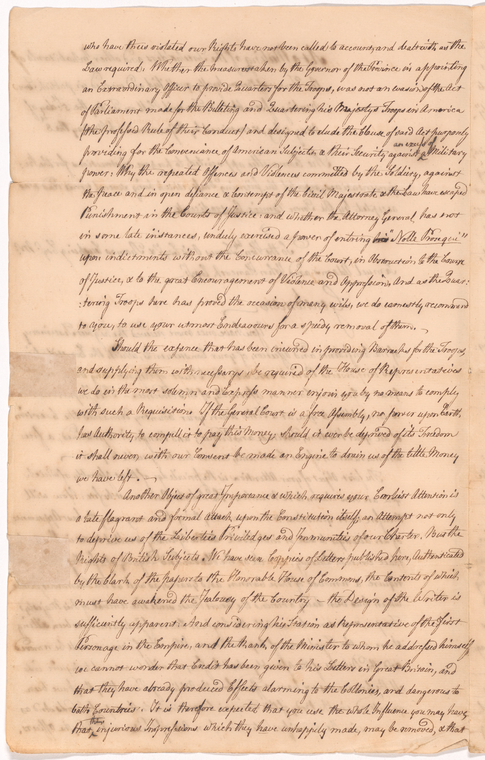 who have thus violated our Rights have not been called to account, and dealt with as the
Law required: Whether the measures taken by the Governor of the Province in appointing
an Extraordinary Officer to provide Quarters for the Troops, was not an evasion of the Act
of Parliament made for the Billeting and Quartering his Majestys Troops in America
(the professed Rule of their Conduct) and designed to elude the Clause of said Act purposely
providing for the Conveniance of American Subjects, & their Security against an excess of Military
power: Why the repeated Offences and Violences committed by the Soldiery, against
the peace and in open defiance & contempt of the Civil Magistrate & the Law have escaped
Punishment in the Courts of Justice: and whether the Attorney General has not
in some late instances, unduly exercised a power of entring Nolle Prosequi"
upon indictments without the Concurrance of the Court, in Obstruction to the Course
of Justice, & to the great Encouragement of Violence and Oppression. And as the Quar-
:tering Troops here has proved the occasion of many evils, we do earnestly recommend
to you, to use your utmost Endeavours for a speedy removal of them. —
Should the expence that has been incurred in providing Barracks for the Troops,
and supplying them with necessarys, be required of the House of Representatives
we do in the most solemn and express manner enjoin you by no means to comply
with such a Requisition. If the General Court is a free Assembly, no power upon Earth
has Authority to compell it to pay this Money, should it ever be deprived of its Freedom
it shall never with our Consent be made an Engine to drain us of the little Money
we have left. —
Another Object of great Importance & which requires your Earliest Attention is
a late flagrant and formal attack upon the Constitution itself, an Attempt not only
to deprive us of the Liberties Priviledges and Immunities of our Charter, but the
Rights of British Subjects. We have seen Coppies of Letters published here, Authenticated
by the Clark of the papers to the Honorable House of Commons, the Contents of which,
must have awakened the Jealousy of the Country — the Design of the Writer is
sufficiently apparent: And considering his Station as Representative of the first
Personage in the Empire, and the rank of the Minister to whom he addressed himself
we cannot wonder that Credit has been given to his Letters in Great Britain, and
that they have already produced Effects alarming to the Colonies, and dangerous to
both Countries. It is therefore expected that you use the whole Influence you may have,
that the injurious Impressions which they have unhappily made, may be removed, & that